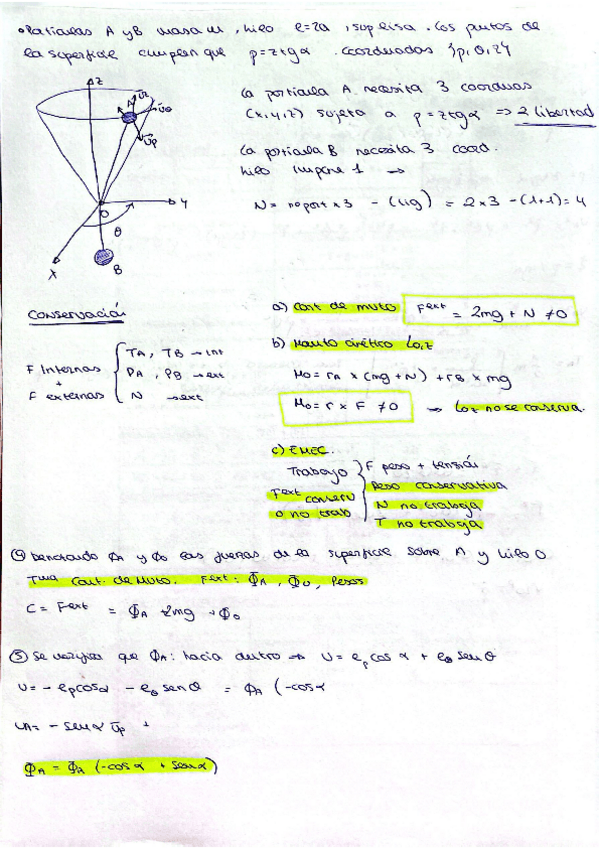 • Partículas A y B masa m, hilo l=2a, sup lisa. Los puntos de
la superficie cumplen que ρ=z tg α. coordenadas {ρ, θ, z}
La partícula A necesita 3 coordenadas
(x, y, z) sujeta a ρ=z tg α => 2 libertad
La partícula B necesita 3 coord.
hilo impone 1 →
N = nº part x 3 - (lig) = 2x3 - (1+1) = 4
Z
A
Uz
Uθ
Uρ
O
Y
θ
X
B
Conservación
F Internas
+
F externas
TA, TB → int
PA, PB → ext
N → ext
a) Cant de mvto
Fext = 2mg + N ≠ 0
b) Mento cinético Lo,z
Mo = rA x (mg + N) + rB x mg
Mo = r x F ≠ 0 → Loz no se conserva.
c) EMEC.
Trabajo
Fext conserv
o no trab
F peso + tensión
Peso conservativa
N no trabaja
T no trabaja
④ Denotando ΦA y Φo las fuerzas de la superficie sobre A y hilo O
Tma Cant. de Mvto. Fext: ΦA, Φo, Pesos
C = Fext = ΦA + 2mg + Φo
⑤ Se verifica que ΦA: hacia dentro → U = eρ cos α + eθ sen θ
U = - eρ cos α - eθ sen θ = ΦA (-cos α
UA = - sen α Uρ +
ΦA = ΦA (-cos α + sen α)